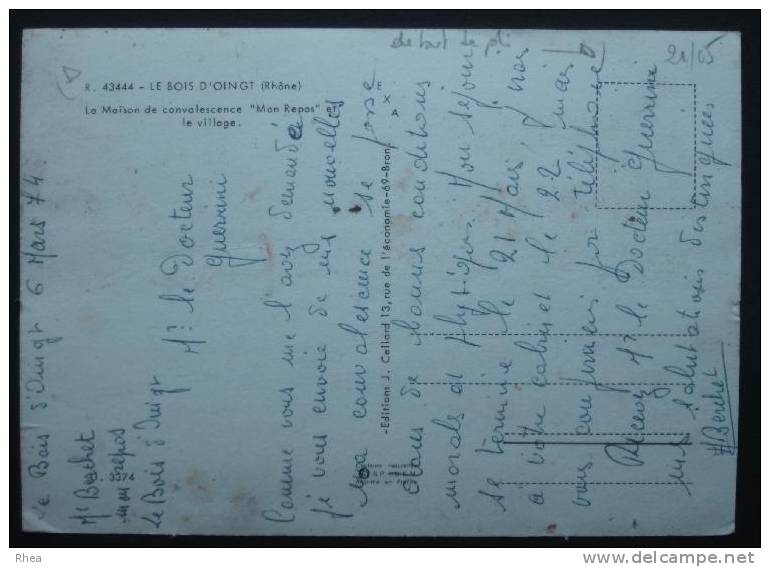 R. 43444 - LE BOIS D'OINGT (Rhône)
La Maison de convalescence "Mon Repos" et
le village.
E
X
A
-Editions J. Cellard 13, rue de l'économie-69-Bron
S. 3374
21/05
Le Bois d'Oingt 6 Mars 74
Me Berchet
mon repos
Le Bois d'Oingt
Mr le Docteur
Guerrini
Comme vous me l'avez demandé
je vous envoie de mes nouvelles
Ma convalescence se passe
dans de bonnes conditions
morales et physiques. Mon séjour
se termine le 21 Mars,
à votre cabinet le 22
vous confirmerai par téléphone
Recevez Mr le Docteur Guerrini
mes salutations distinguées
Berchet
Delhaize